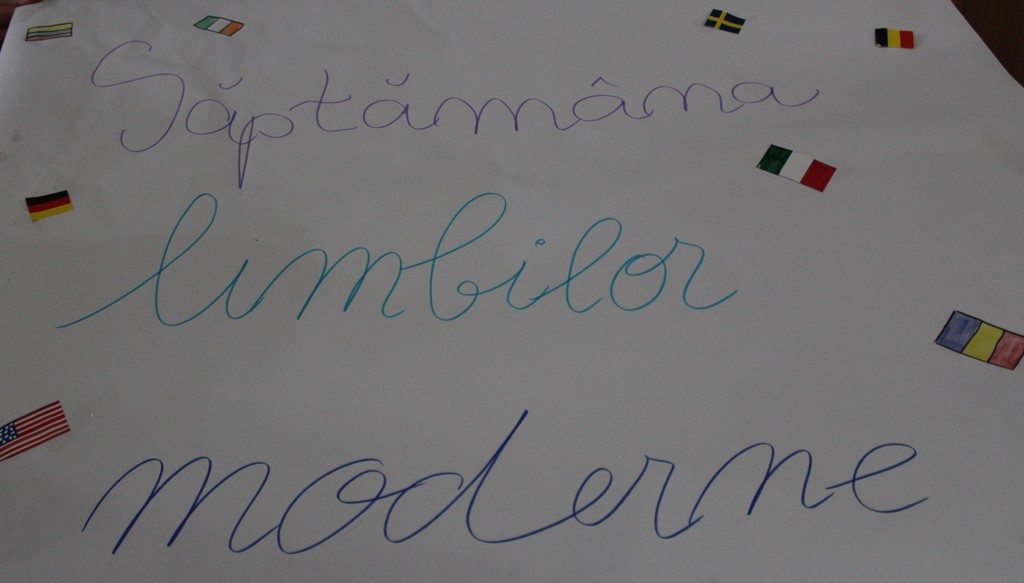 Săptămâna
limbilor
moderne